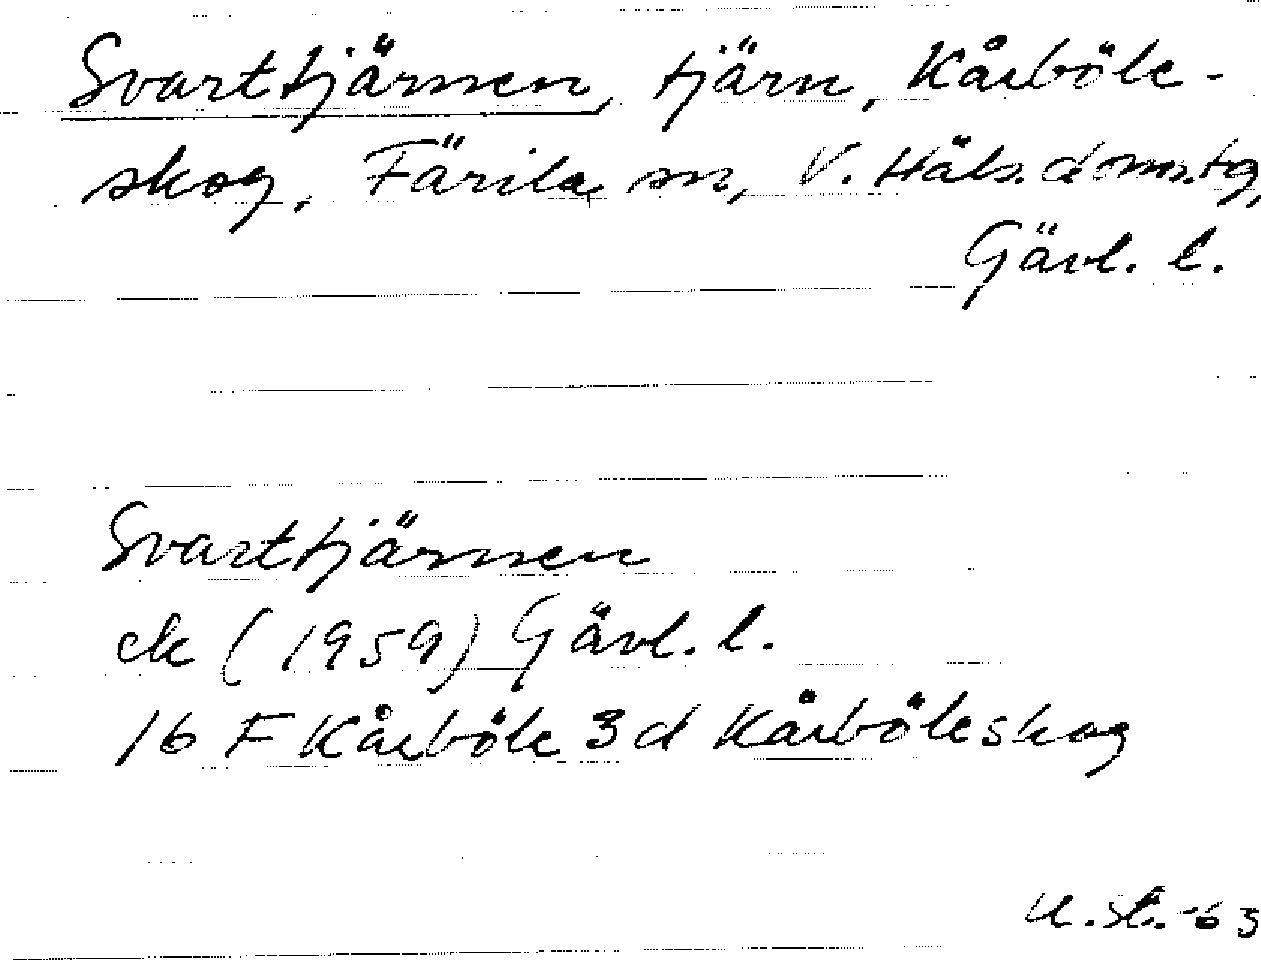 Svarttjärnen, tjärn, Kårböle-
skog, Färila sn, V. Häls. doms.tg,
Gävl. l.
Svarttjärnen
ek (1959) Gävl. l.
16 F Kårböle 3 d Kårböleskog
-63